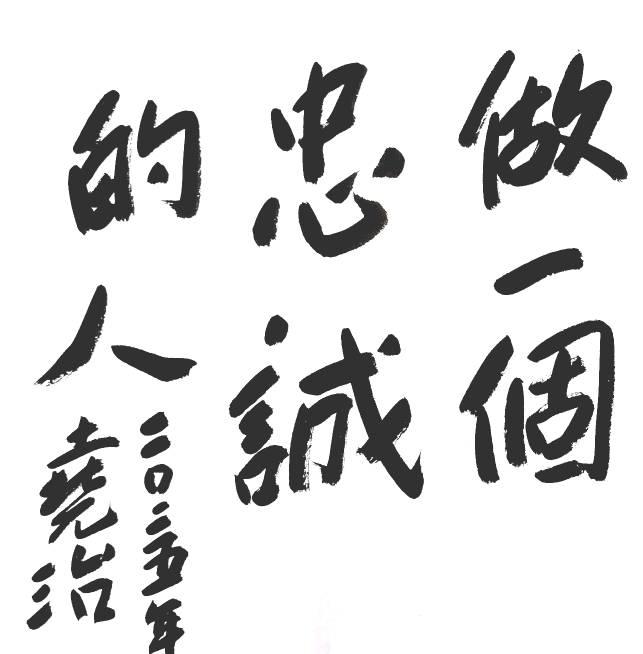 做一個
忠誠
的人
二〇二五年
堯治